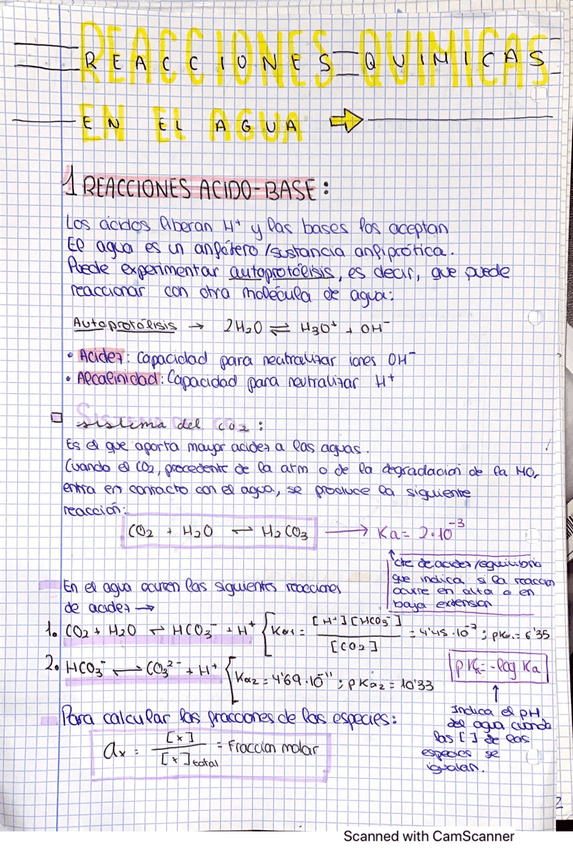 REACCIONES QUIMICAS
EN EL AGUA →
1 REACCIONES ACIDO-BASE:
Los ácidos liberan H⁺ y las bases los aceptan
El agua es un anfótero / sustancia anfiprótica.
Puede experimentar autoprotólisis, es decir, que puede
reaccionar con otra molécula de agua:
Autoprotólisis → 2H₂O ⇌ H₃O⁺ + OH⁻
• Acidez: Capacidad para neutralizar iones OH⁻
• Alcalinidad: Capacidad para neutralizar H⁺
Sistema del CO₂:
Es el que aporta mayor acidez a las aguas.
Cuando el CO₂, procedente de la atm o de la degradación de la MO,
entra en contacto con el agua, se produce la siguiente
reacción:
CO₂ + H₂O ⇌ H₂CO₃ → Ka = 2·10⁻³
cte de acidez/equilibrio
que indica si la reacción
ocurre en alta o en
baja extensión
En el agua ocurren las siguientes reacciones
de acidez →
1. CO₂ + H₂O ⇌ HCO₃⁻ + H⁺ { Ka₁ = [H⁺][HCO₃⁻] / [CO₂] = 4'45·10⁻⁷ ; pKa₁ = 6'35
2. HCO₃⁻ ⇌ CO₃²⁻ + H⁺ { Ka₂ = 4'69·10⁻¹¹ ; pKa₂ = 10'33
pKa = -log Ka
Indica el pH
del agua cuando
las [ ] de las
especies se
igualan.
Para calcular las fracciones de las especies:
αx = [x] / [x]total = Fracción molar
2
Scanned with CamScanner